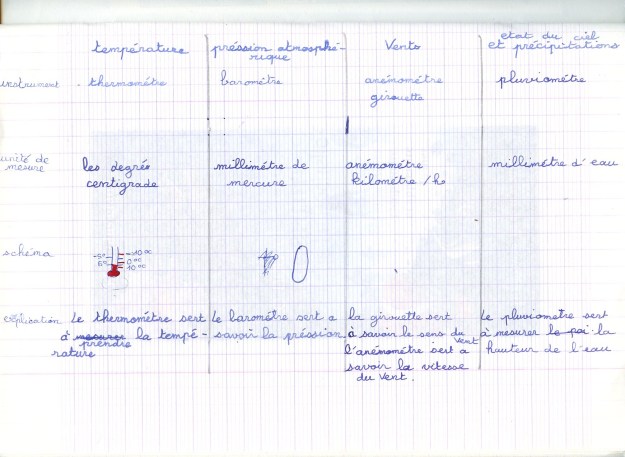 température
préssion atmosphé-
rique
Vents
etat du ciel
et précipitations
instrument
thermométre
barométre
anémométre
girouette
pluviométre
unité de
mesure
les degrés
centigrade
millimétre de
mercure
anémométre
kilométre /h
millimétre d'eau
schéma
-5°
5°
-10°C
0°C
10°C
éxplication
Le thermométre sert
à mesurer la tempé-
prendre
rature
Le barométre sert a
savoir la préssion
la girouette sert
à savoir le sens du
vent
l'anémométre sert a
savoir la vitesse
du vent.
Le pluviometre sert
à mesurer le poi la
hauteur de l'eau